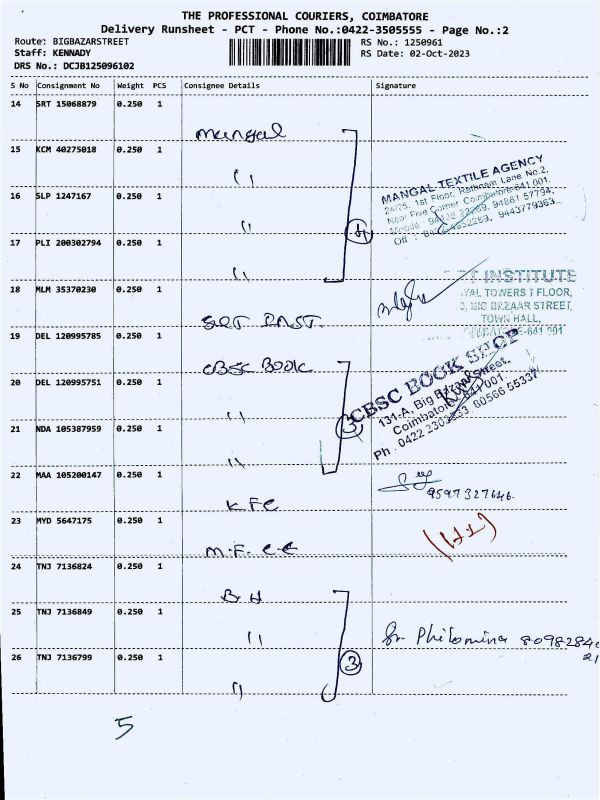 THE PROFESSIONAL COURIERS, COIMBATORE
Delivery Runsheet - PCT - Phone No.:0422-3505555 - Page No.:2
Route: BIGBAZARSTREET
Staff: KENNADY
DRS No.: DCJB125096102
RS No.: 1250961
RS Date: 02-Oct-2023
S No Consignment No Weight PCS Consignee Details Signature
14 SRT 15068879 0.250 1
Mangal
15 KCM 40275018 0.250 1
"
MANGAL TEXTILE AGENCY
1st Floor, Rathnam Lane No.2,
Near Five Corner Coimbatore-641 001.
16 SLP 1247167 0.250 1
"
17 PLI 200302794 0.250 1
4
"
18 MLM 35370230 0.250 1
INSTITUTE
YAL TOWERS I FLOOR,
BIG BAZAAR STREET,
TOWN HALL,
-641 001
19 DEL 120995785 0.250 1
CBSC BOOK
20 DEL 120995751 0.250 1
"
CBSC BOOK SHOP
131-A, Big Bazaar Street,
Coimbatore-641 001
21 NDA 105387959 0.250 1
3
"
22 MAA 105200147 0.250 1
KFC
9597327646.
23 MYD 5647175 0.250 1
24 TNJ 7136824 0.250 1
BH
25 TNJ 7136849 0.250 1
"
Sr Philomina
26 TNJ 7136799 0.250 1
3
"
5